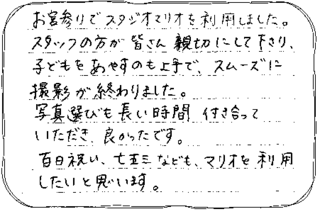 お宮参りでスタジオマリオを利用しました。
スタッフの方が皆さん親切にして下さり、
子どもをあやすのも上手で、スムーズに
撮影が終わりました。
写真選びも長い時間付き合って
いただき、良かったです。
百日祝い、七五三なども、マリオを利用
したいと思います。